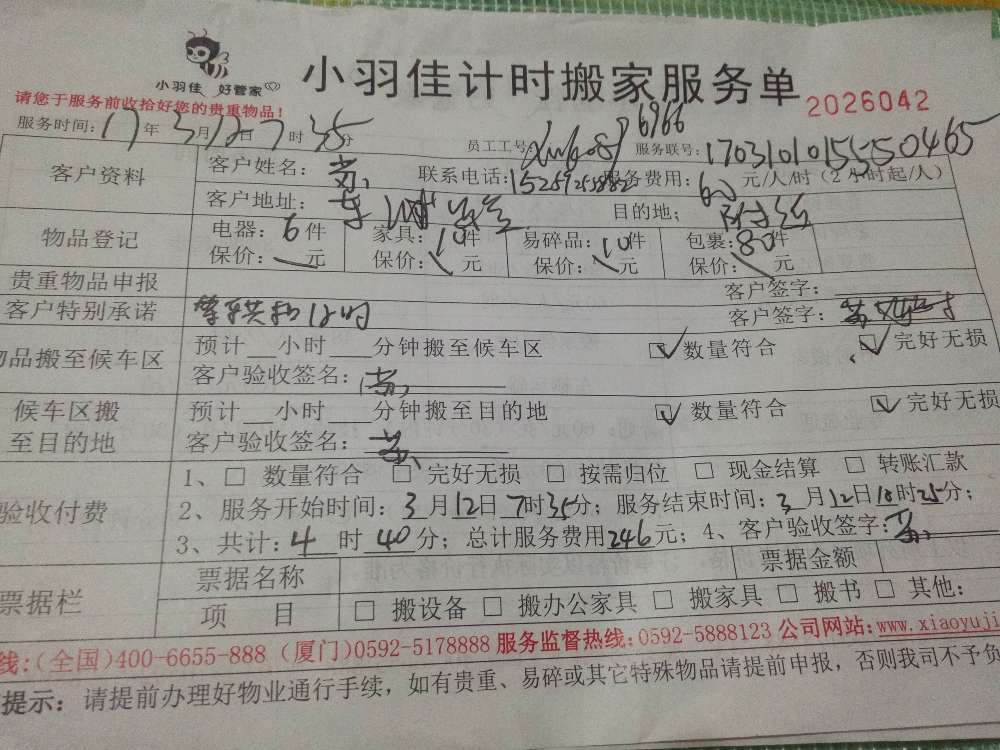 小羽佳 好管家
小羽佳计时搬家服务单
2026042
请您于服务前收拾好您的贵重物品!
服务时间: 17年3月12日7时35分
员工工号 6966 服务联号: 17031010155550465
客户资料 客户姓名: 联系电话: 服务费用: 60 元/人/时（2小时起/人）
客户地址: 目的地:
物品登记 电器: 6件 家具: 10件 易碎品: 10件 包裹: 80件
保价: 元 保价: 元 保价: 元 保价: 元
贵重物品申报 客户签字:
客户特别承诺 客户签字:
物品搬至候车区 预计__小时___分钟搬至候车区 ☑数量符合 ☑完好无损
客户验收签名:
候车区搬至目的地 预计__小时___分钟搬至目的地 ☑数量符合 ☑完好无损
客户验收签名:
验收付费 1、□ 数量符合 □ 完好无损 □ 按需归位 □ 现金结算 □ 转账汇款
2、服务开始时间: 3月12日7时35分; 服务结束时间: 3月12日18时25分;
3、共计: 4时40分; 总计服务费用246元; 4、客户验收签字:
票据栏 票据名称 票据金额
项 目 □ 搬设备 □ 搬办公家具 □ 搬家具 □ 搬书 □ 其他:
线:(全国)400-6655-888 (厦门)0592-5178888 服务监督热线: 0592-5888123 公司网站: www.xiaoyuji
提示: 请提前办理好物业通行手续, 如有贵重、易碎或其它特殊物品请提前申报, 否则我司不予负